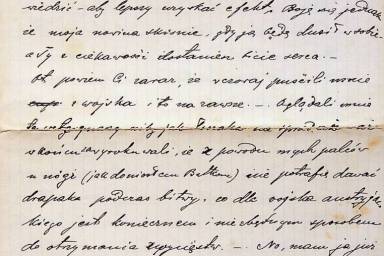 wiedzić aby lepszy uzyskać efekt. Boję się jednak
że moja nowina skiśnie, gdy ją będę dusił w sobie
a Ty z ciekawości dostaniesz bicie serca. –
Ot powiem Ci zaraz, że wczoraj puścili mnie
z wojska i to na zawsze. –. Oglądali mnie
na
w końcu zawyrokowali, że z powodu mych palców
u nogi (jak doniosłem Betkom) nie potrafię dawać
drapaka podczas bitwy, co dla wojska austryjac-
kiego jest koniecznem i niezbędnym sposobem
do otrzymania zwycięstw. –. No, mam ja już